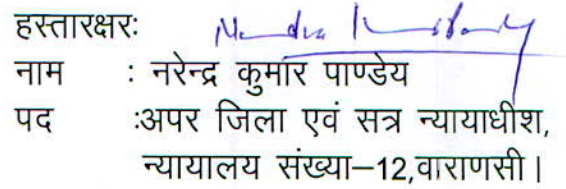 हस्तारक्षरः
नाम : नरेन्द्र कुमार पाण्डेय
पद :अपर जिला एवं सत्र न्यायाधीश,
न्यायालय संख्या–12,वाराणसी।